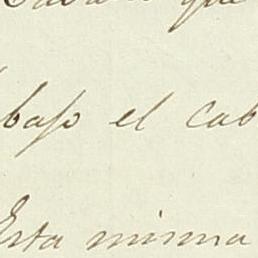 que
bajo el cab
Esta misma